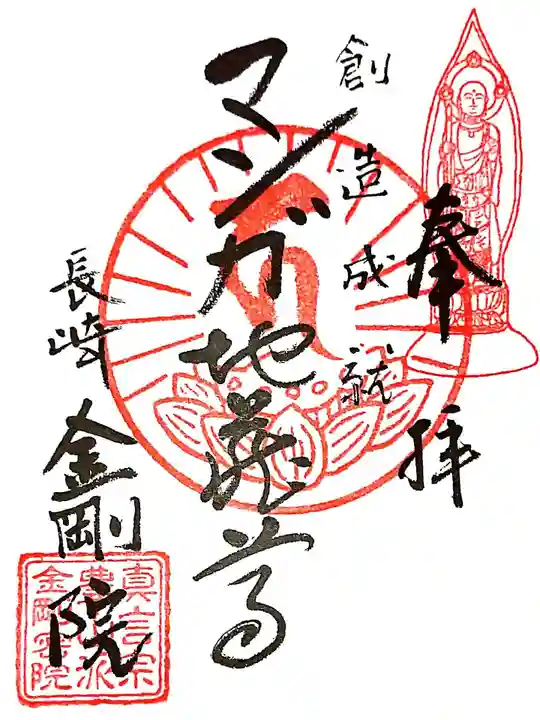 奉拝
創造成就
マンガ地蔵尊
長崎
金剛院
真言宗
豊山派
金剛密院